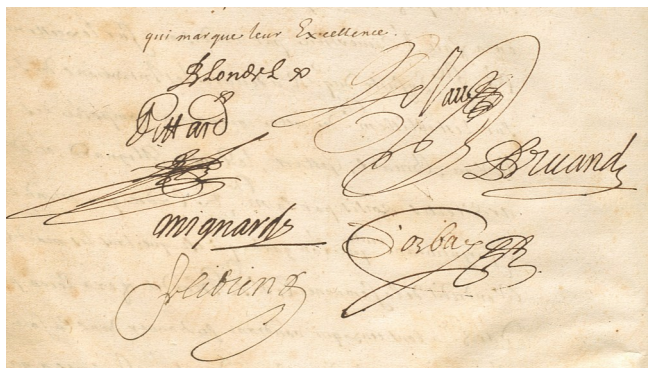 qui marque leur Excellence.
Blondel
Le Vau
Gittard
Bruand
Mignard
Dorbay
Felibien